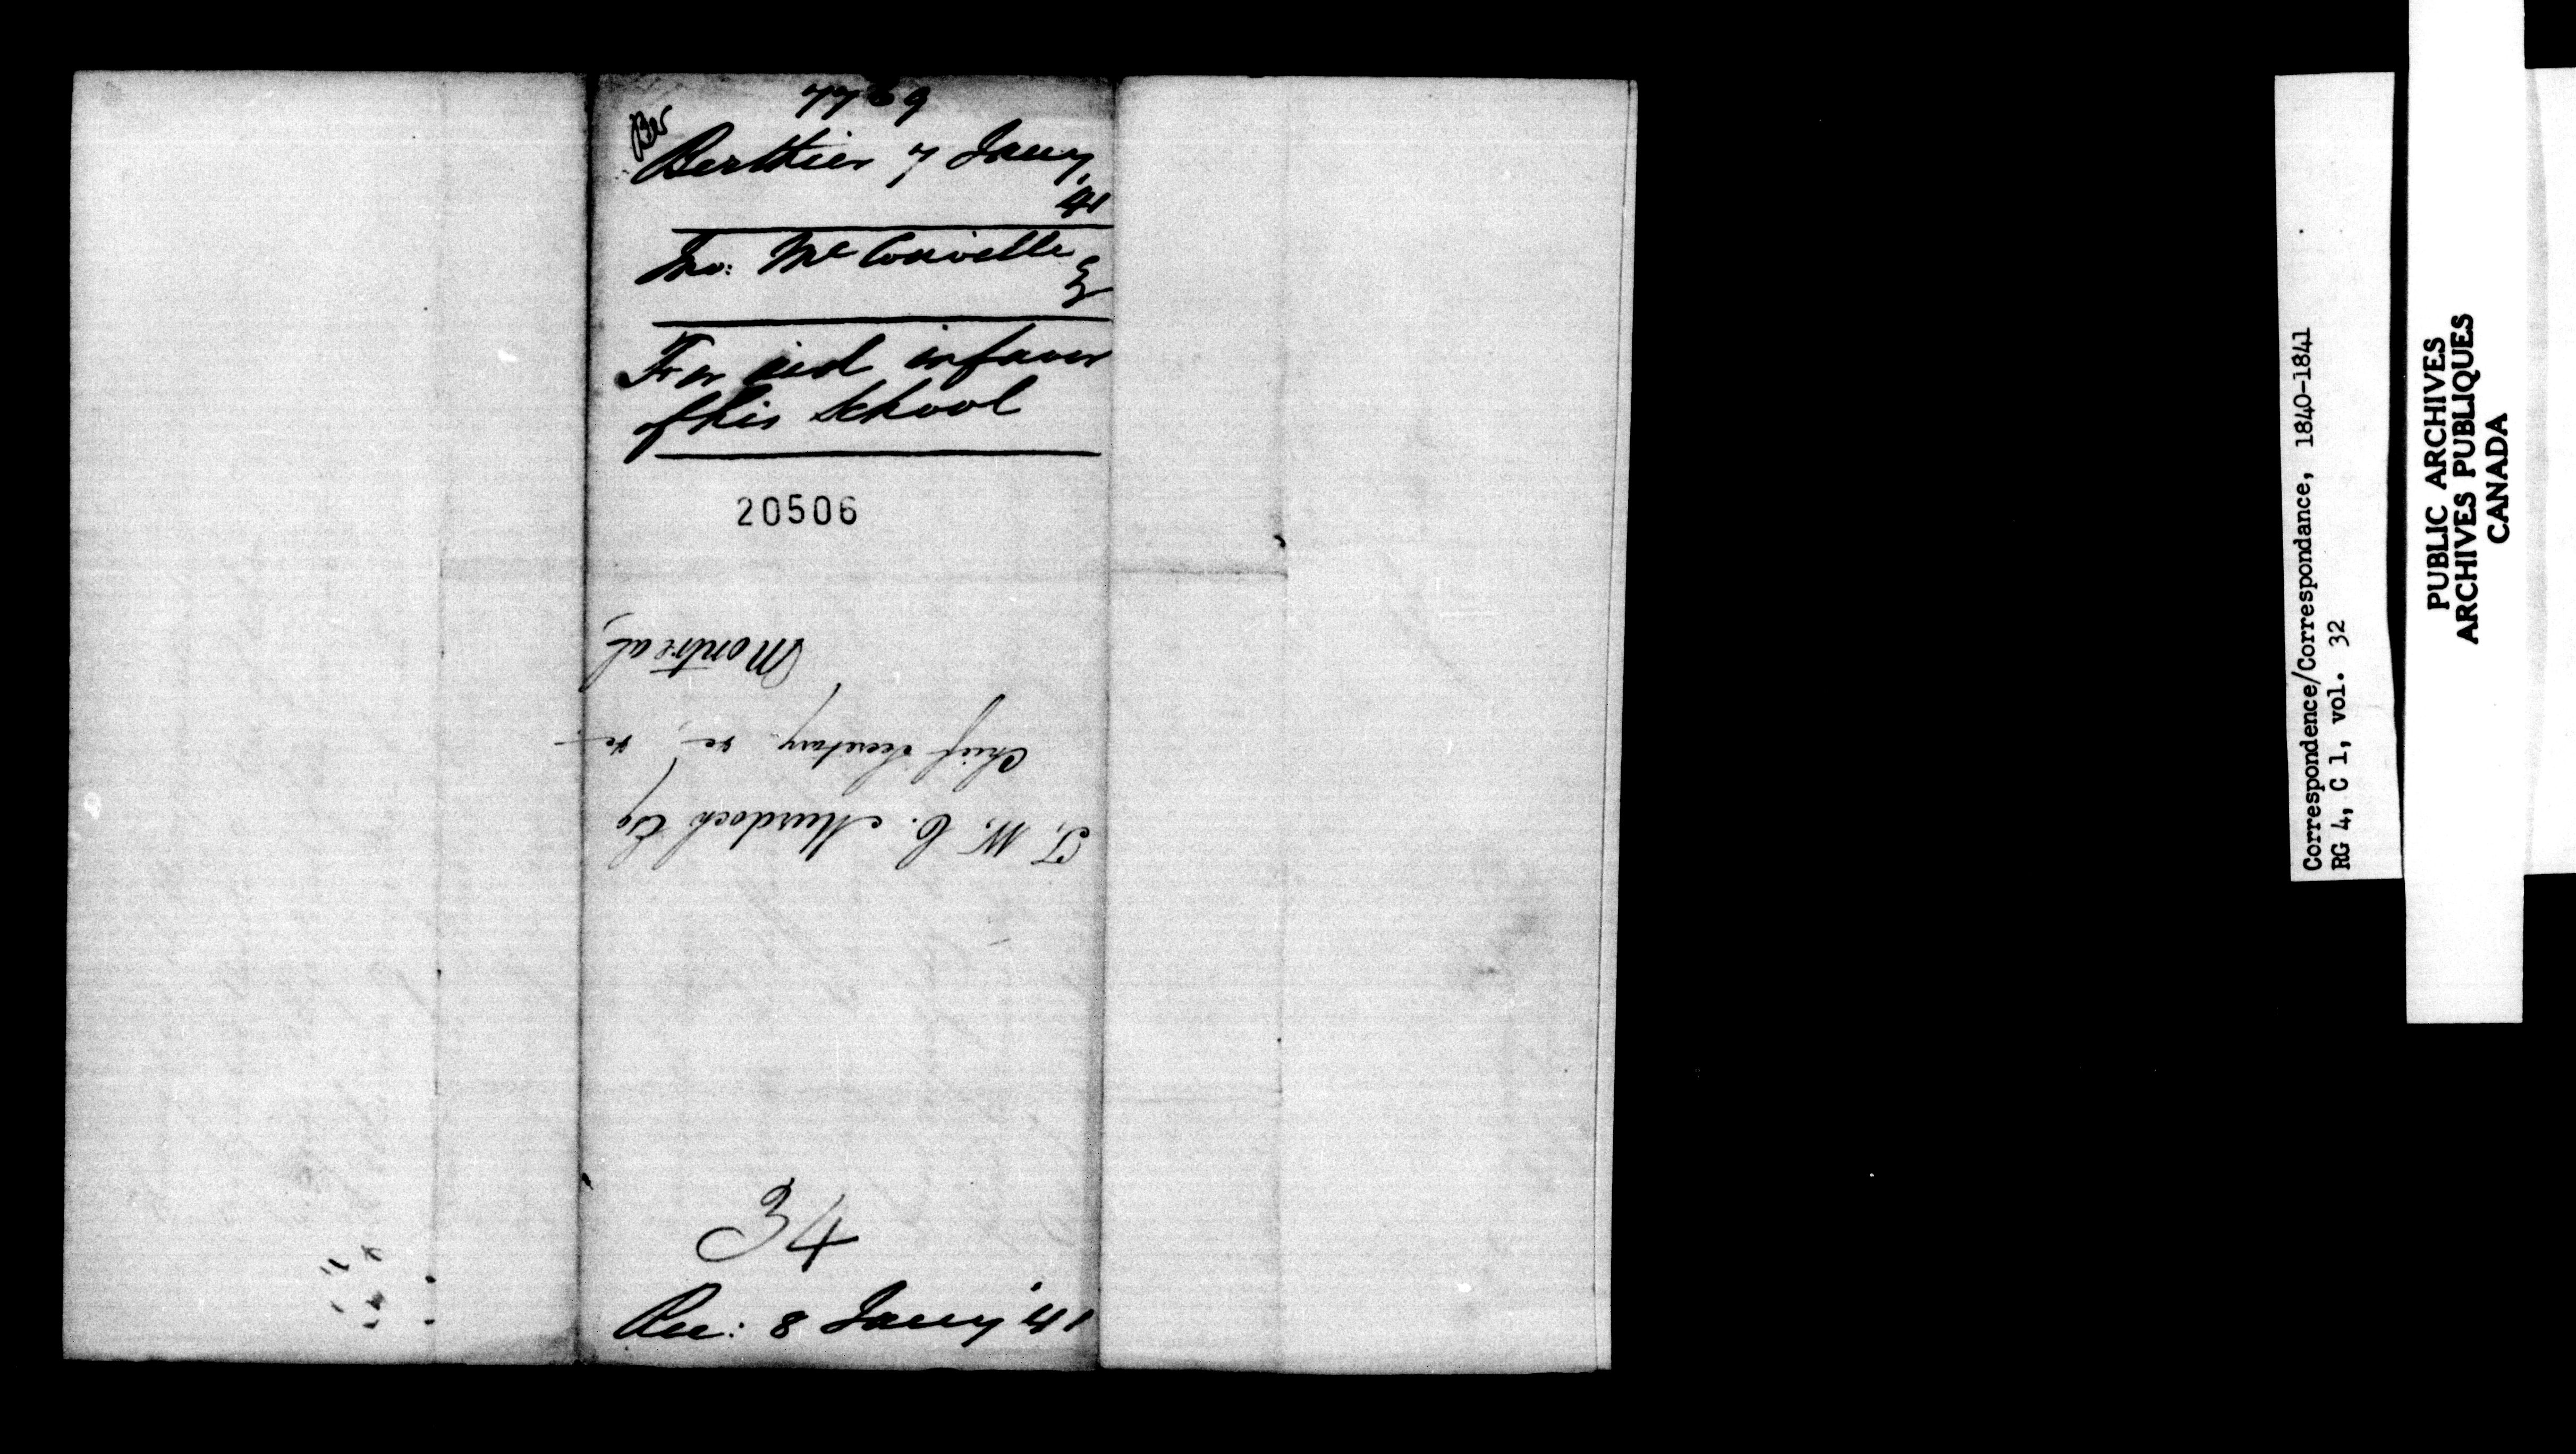 Ber
Berthier 7 Jany
41
Jno: McConville
Esq
For aid in favor
of his School
20506
T. W. C. Murdoch Esq
Chief Secretary &c, &c
Montreal,
34
Rec: 8 Jany '41
Correspondence/Correspondance, 1840-1841
RG 4, C 1, vol. 32
PUBLIC ARCHIVES
ARCHIVES PUBLIQUES
CANADA